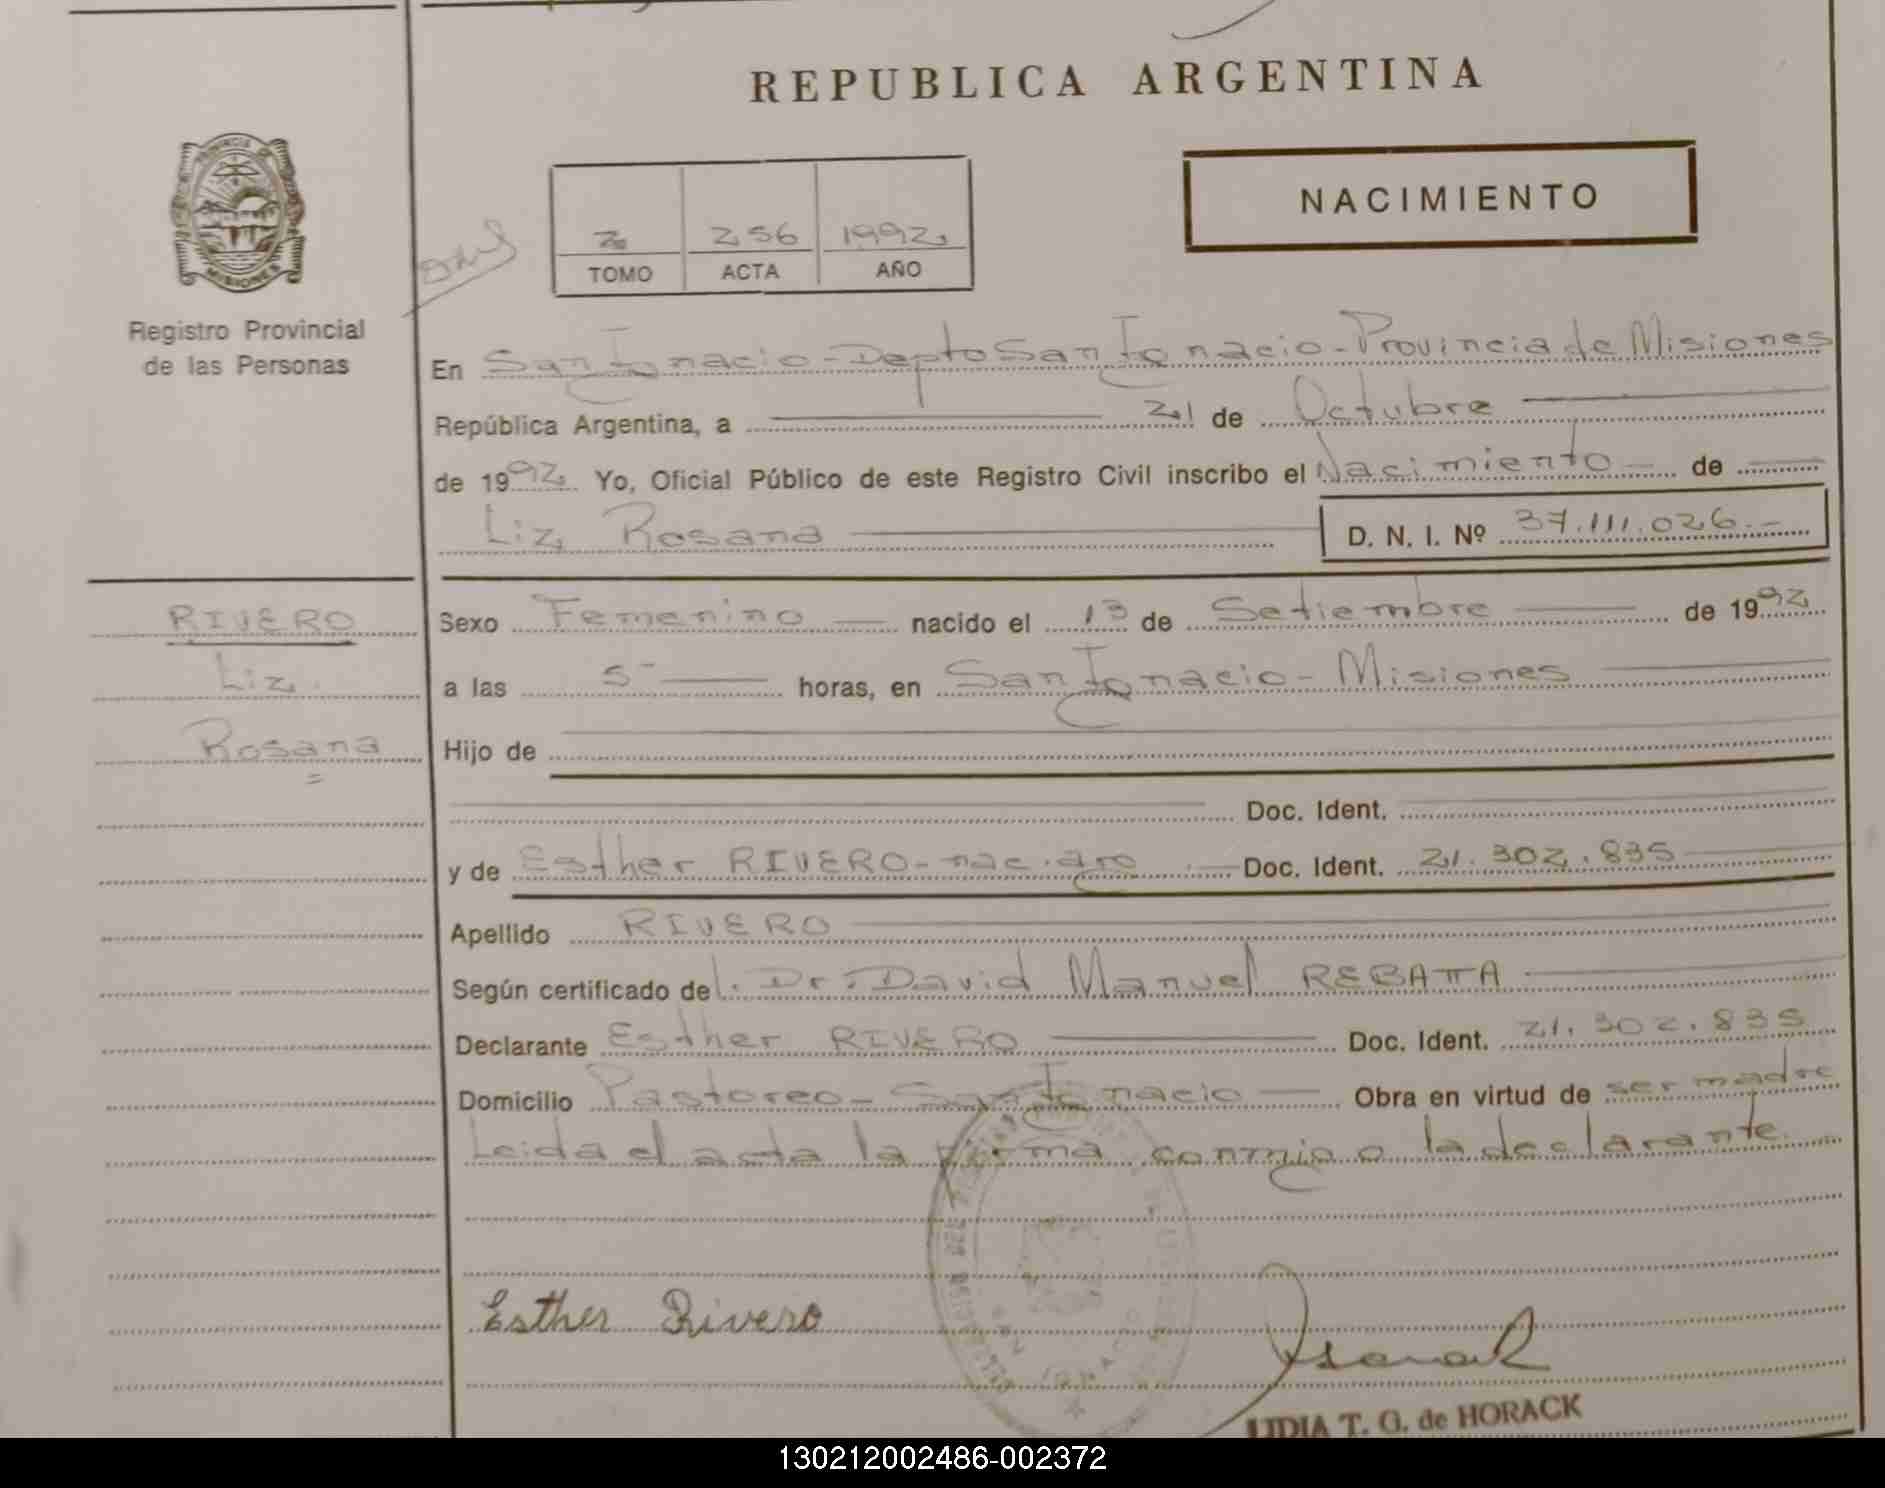 REPUBLICA ARGENTINA
PROVINCIA DE
MISIONES
Registro Provincial
de las Personas
2 256 1992
TOMO ACTA AÑO
NACIMIENTO
En San Ignacio - Depto San Ignacio - Provincia de Misiones
República Argentina, a 21 de Octubre
de 1992 Yo, Oficial Público de este Registro Civil inscribo el Nacimiento de
Liz Rosana D. N. I. Nº 37.111.026.-
RIVERO
Liz
Rosana
Sexo Femenino nacido el 13 de Setiembre de 1992
a las 5 horas, en San Ignacio - Misiones
Hijo de
Doc. Ident.
y de Esther RIVERO - nac. arg Doc. Ident. 21.302.835
Apellido RIVERO
Según certificado del. Dr. David Manuel REBATTA
Declarante Esther RIVERO Doc. Ident. 21.302.835
Domicilio Pastoreo - San Ignacio Obra en virtud de ser madre
Leida el acta la firma conmigo la declarante.
Esther Rivero
SAN IGNACIO
LIDIA T. G. de HORACK
130212002486-002372